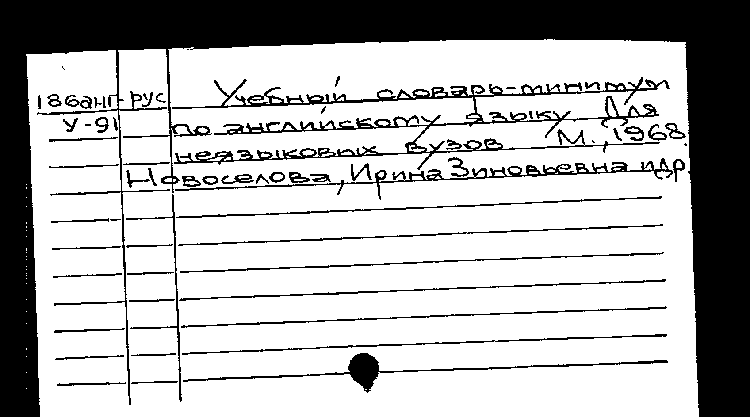 186англ-рус Учебный словарь-минимум
У-91 по английскому языку. Для
неязыковых вузов. М., 1968.
Новоселова, Ирина Зиновьевна и др.